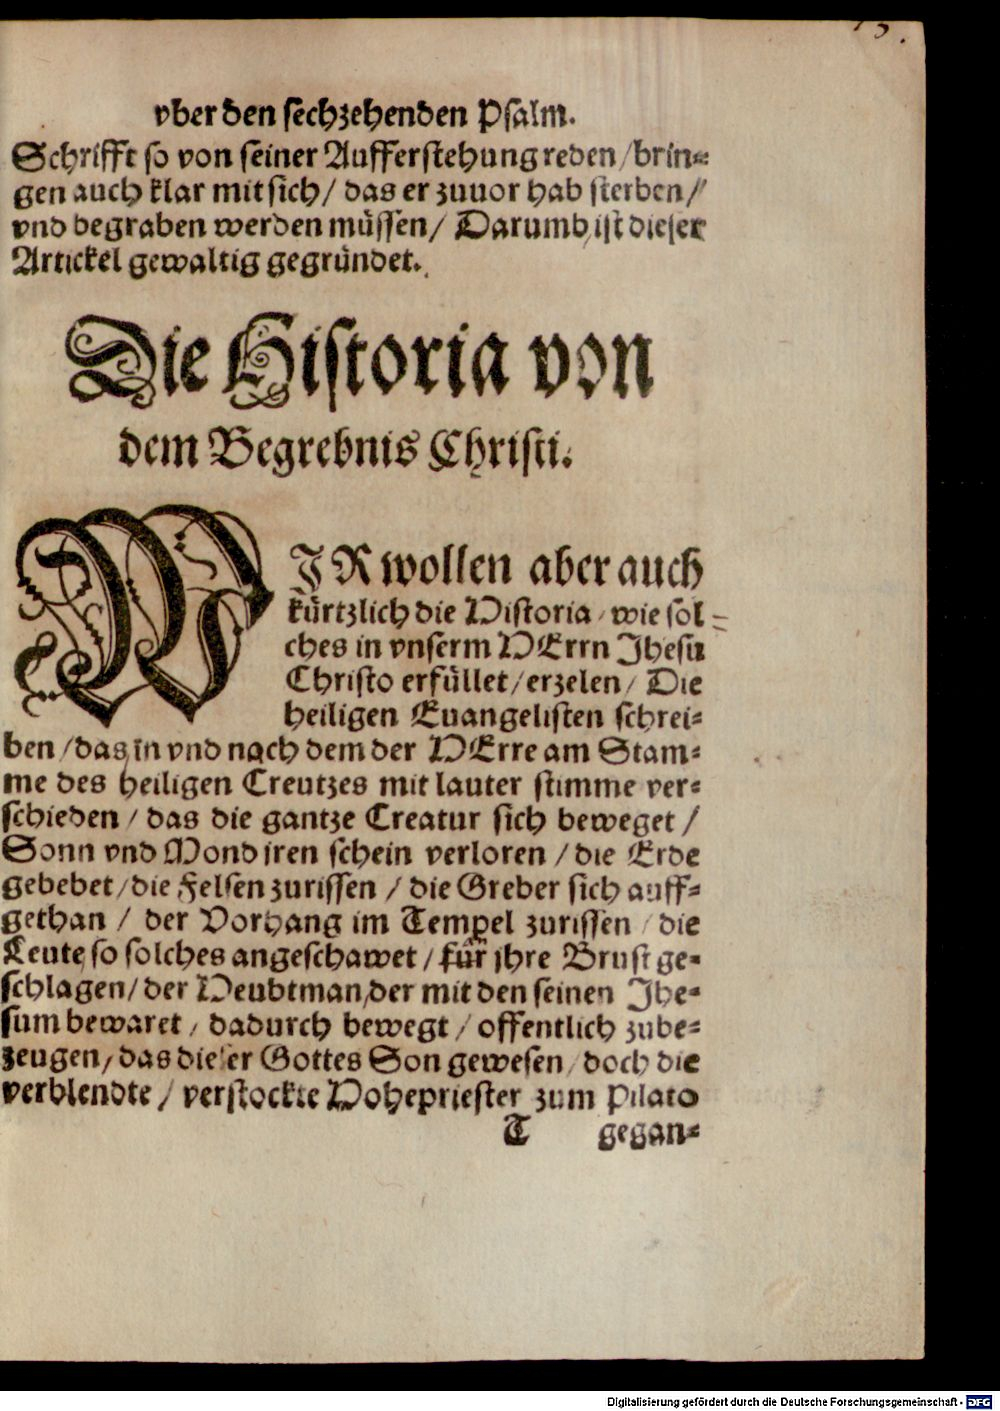 73.
vber den sechzehenden Psalm.
Schrifft so von seiner Aufferstehung reden / brin-
gen auch klar mit sich / das er zuuor hab sterben /
vnd begraben werden müssen / Darumb ist dieser
Artickel gewaltig gegründet.
Die Historia von
dem Begrebnis Christi.
WIR wollen aber auch
kürtzlich die Historia / wie sol-
ches in vnserm HErrn Jhesu
Christo erfüllet / erzelen / Die
heiligen Euangelisten schrei-
ben / das in vnd nach dem der HErre am Stam-
me des heiligen Creutzes mit lauter stimme ver-
schieden / das die gantze Creatur sich beweget /
Sonn vnd Mond jren schein verloren / die Erde
gebebet / die Felsen zurissen / die Greber sich auff-
gethan / der Vorhang im Tempel zurissen / die
Leute so solches angeschawet / für jhre Brust ge-
schlagen / der Heubtman / der mit den seinen Jhe-
sum bewaret / dadurch bewegt / offentlich zube-
zeugen / das dieser Gottes Son gewesen / doch die
verblendte / verstockte Hohepriester zum Pilato
T gegan-
Digitalisierung gefördert durch die Deutsche Forschungsgemeinschaft - DFG